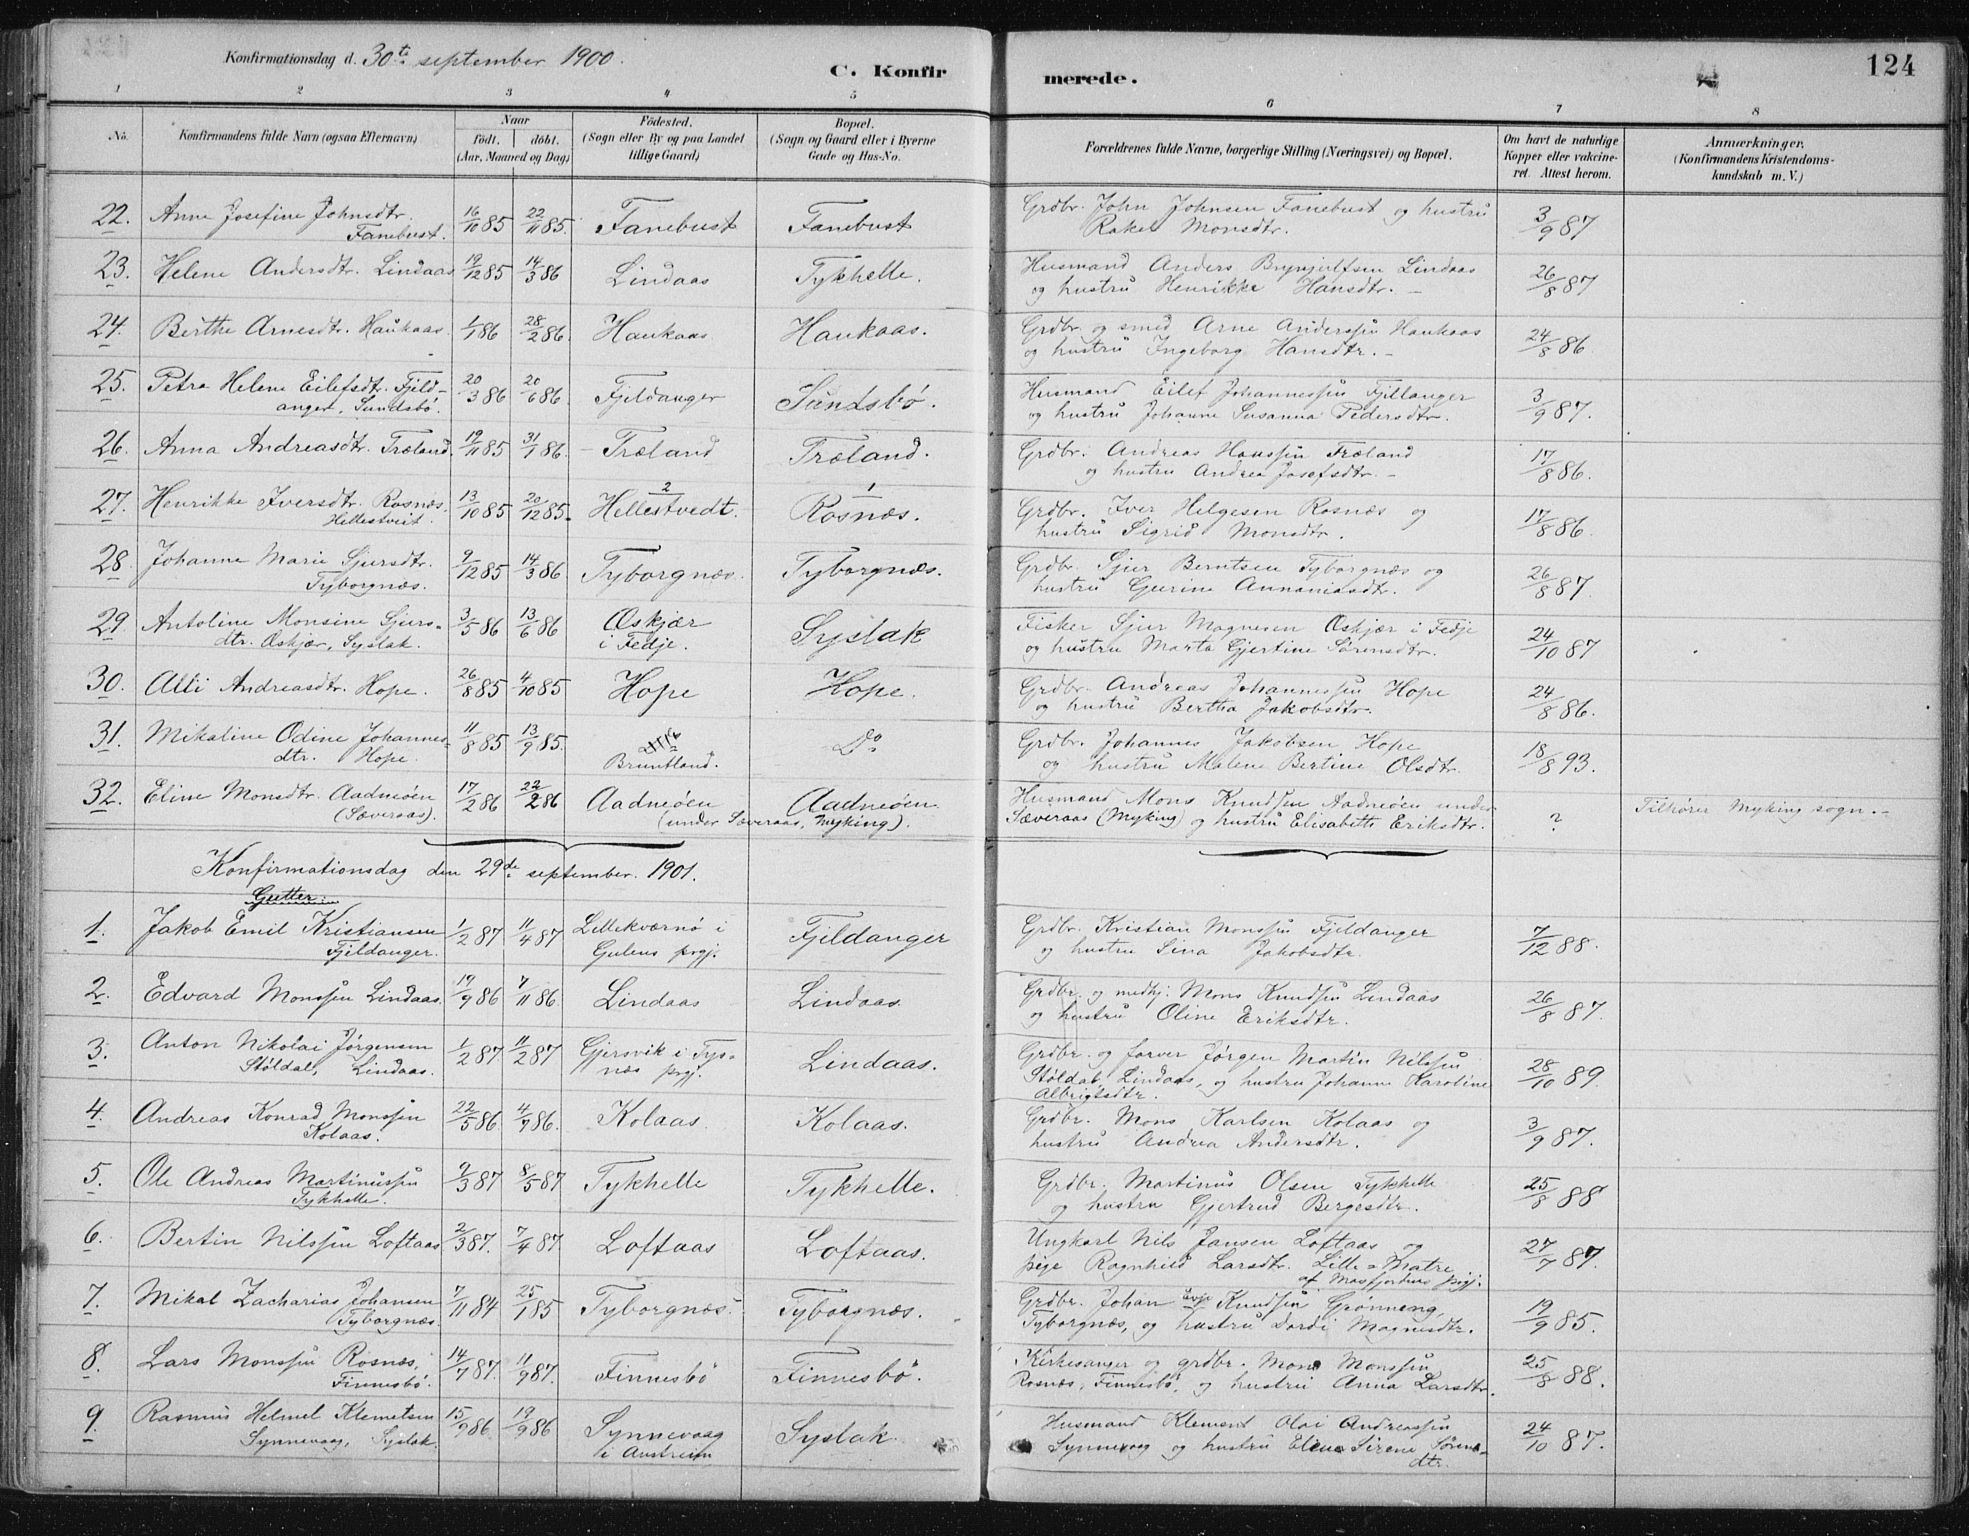 Konfirmationsdag d. 30te september 1900.
C. Konfirmerede.
124
1 2 3 4 5 6 7 8
No.
Konfirmandens fulde Navn (ogsaa Efternavn)
Naar
født. døbt.
(Aar, Maaned og Dag)
Fødested.
(Sogn eller By og paa Landet
tillige Gaard)
Bopæl.
(Sogn og Gaard eller i Byerne
Gade og Hus-No.
Forældrenes fulde Navne, borgerlige Stilling (Næringsvei) og Bopæl.
Om havt de naturlige
Kopper eller vakcine-
ret. Attest herom.
Anmærkninger.
(Konfirmandens Kristendoms-
kundskab m. V.)
22. Anne Josefine Johnsdtr. 16/10 85 22/11 85. Fanebust Fanebust Grdbr. John Johnsen Fanebust og hustru 3/9 87
Fanebust. Rakel Monsdtr.
23. Helene Andersdtr. Lindaas 19/12 85 14/3 86 Lindaas Tykhelle. Husmand Anders Brynjulfsen Lindaas 26/8 87
og hustru Henrikke Hansdtr. –
24. Berthe Arnesdtr. Haukaas. 1/1 86 28/2 86. Haukaas Haukaas. Grdbr. og smed Arne Anderssen Haukaas 24/8 86.
og hustru Ingeborg Hansdtr. –
25. Petra Helene Eilefsdtr. Fjeld- 20/3 86 20/6 86 Fjeldanger Sundsbö. Husmand Eilef Johannessen Fjellanger 3/9 87.
anger, Sundsbö. og hustru Johanne Susanna Pedersdtr.
26. Anna Andreasdtr. Fræland. 19/11 85 31/1 86. Fræland Fræland. Grdbr. Andreas Hanssen Fræland 17/8 86.
og hustru Andrea Josefsdtr. –
27. Henrikke Iversdtr. Rosnæs. 13/10 85 20/12 85. 2 Hellestvedt. 1 Rosnæs. Grdbr. Iver Helgesen Rosnæs og 17/8 86.
Hellestveit. hustru Sigrid Monsdtr.
28. Johanne Marie Sjursdtr. 9/12 85 14/3 86 Tyborgnæs. Tyborgnæs. Grdbr. Sjur Berntsen Tyborgnæs og 26/8 87
Tyborgnæs. hustru Gurine Annaniasdtr.
29. Antoline Monsine Sjurs- 3/5 86 13/6 86 Øskjær Syslak Fisker Sjur Magnesen Øskjær i Fedje 24/10 87
dtr. Øskjær, Syslak. i Fedje. og hustru Marta Gjertine Sörensdtr.
30. Alli Andreasdtr. Hope. 26/8 85 4/10 85 Hope Hope. Grdbr. Andreas Johannessen Hope 24/8 86.
og hustru Bertha Jakobsdtr.
31. Mikaline Odine Johannes- 11/8 85 13/9 85. Do Grdbr. Johannes Jakobsen Hope 18/8 93.
dtr. Hope. Bruntland. og hustru Malene Bertine Olsdtr.
32. Eline Monsdtr. Aadneöen 17/2 86 22/2 86 Aadneöen Aadneöen Husmand Mons Knudsen Aadneöen under ? Tilhörer Myking sogn. –
(Sæveraas). (under Sæveraas, Myking). Sæveraas (Myking) og hustru Elisabeth Eriksdtr.
Konfirmationsdag den 29de september 1901.
Gutter:
1. Jakob Emil Kristiansen 1/2 87 11/4 87 Lillekværnö i Fjeldanger Grdbr. Kristian Monssen Fjeldanger 7/12 88.
Fjeldanger. Gulens prgj. og hustru Sina Jakobsdtr.
2. Edvard Monssen Lindaas. 19/9 86 7/11 86. Lindaas Lindaas Grdbr. og medhj. Mons Knudsen Lindaas 26/8 87.
og hustru Oline Eriksdtr.
3. Anton Nikolai Jörgensen 1/2 87 11/2 87 Gjersvik i Tys- Lindaas. Grdbr. og farver Jörgen Martin Nilssen 28/10 89.
Stöldal, Lindaas. næs prgj. Stöldal, Lindaas, og hustru Johanne Karoline
Albrigtsdtr.
4. Andreas Konrad Monssen 22/5 86 4/7 86. Kolaas. Kolaas. Grdbr. Mons Karlsen Kolaas og 3/9 87.
Kolaas. hustru Andrea Andersdtr.
5. Ole Andreas Martinussen 9/3 87 8/5 87 Tykhelle Tykhelle. Grdbr. Martinus Olsen Tykhelle 25/8 88
Tykhelle. og hustru Gjertrud Bergesdtr.
6. Bertin Nilssen Loftaas 2/3 87. 7/4 87. Loftaas Loftaas. Ungkarl Nils Jansen Loftaas og 27/7 87.
pige Ragnhild Larsdtr. Lille-Matre
af Masfjordens prgj.
7. Mikal Zacharias Johansen 7/11 84 25/1 85 Tyborgnæs. Tyborgnæs. Grdbr. Johan Knudsen Grönneng, 19/9 85.
Tyborgnæs. Tyborgnæs, og hustru Dordi Magnesdtr.
8. Lars Monssen Rosnæs, 14/7 87. 11/9 87. Finnesbö Finnesbö. Kirkesanger og grdbr. Mons Monssen 25/8 88.
Finnesbö. Rosnæs, Finnesbö, og hustru Anna Larsdtr.
9. Rasmus Helmel Klemetsen 15/9 86. 19/9 86 Synnevaag Syslak Husmand Klement Olai Andreassen 24/10 87.
Synnevaag, Syslak. i Austreim Synnevaag og hustru Elene Sirene Sörens-
dtr.